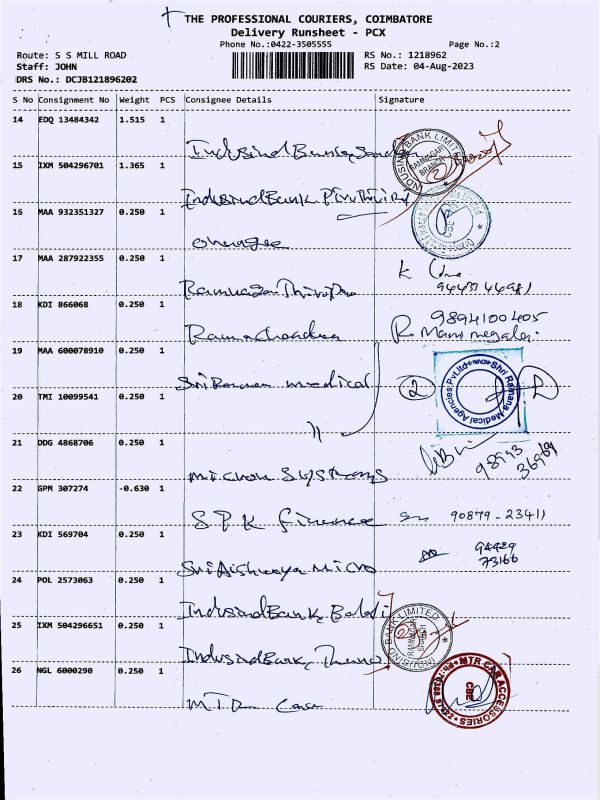 THE PROFESSIONAL COURIERS, COIMBATORE
Delivery Runsheet - PCX
Phone No.:0422-3505555
Page No.:2
Route: S S MILL ROAD
RS No.: 1218962
Staff: JOHN
RS Date: 04-Aug-2023
DRS No.: DCJB121896202
S No Consignment No Weight PCS Consignee Details Signature
14 EDQ 13484342 1.515 1
IndusInd Bank
INDUSIND BANK LIMITED
RAMNAGAR BRANCH
15 IXM 504296701 1.365 1
IndusInd Bank
16 MAA 932351327 0.250 1
17 MAA 287922355 0.250 1
K
18 KDI 866068 0.250 1
9894100405
Ramachandra R.
19 MAA 600078910 0.250 1
Sri Ramana medical 2
Shri Ramana Medical Agencies Pvt Ltd
20 TMI 10099541 0.250 1
"
21 DDG 4868706 0.250 1
98943
36969
Micron Systems
22 GPM 307274 -0.630 1
S P K finance 90879-23411
23 KDI 569704 0.250 1
94429
73166
Sri Aishwarya Micro
24 POL 2573063 0.250 1
IndusInd Bank
INDUSIND BANK LIMITED
RAMNAGAR BRANCH
25 IXM 504296651 0.250 1
IndusInd Bank
26 NGL 6000290 0.250 1
MTR CAR ACCESSORIES
CBE
MTR Car